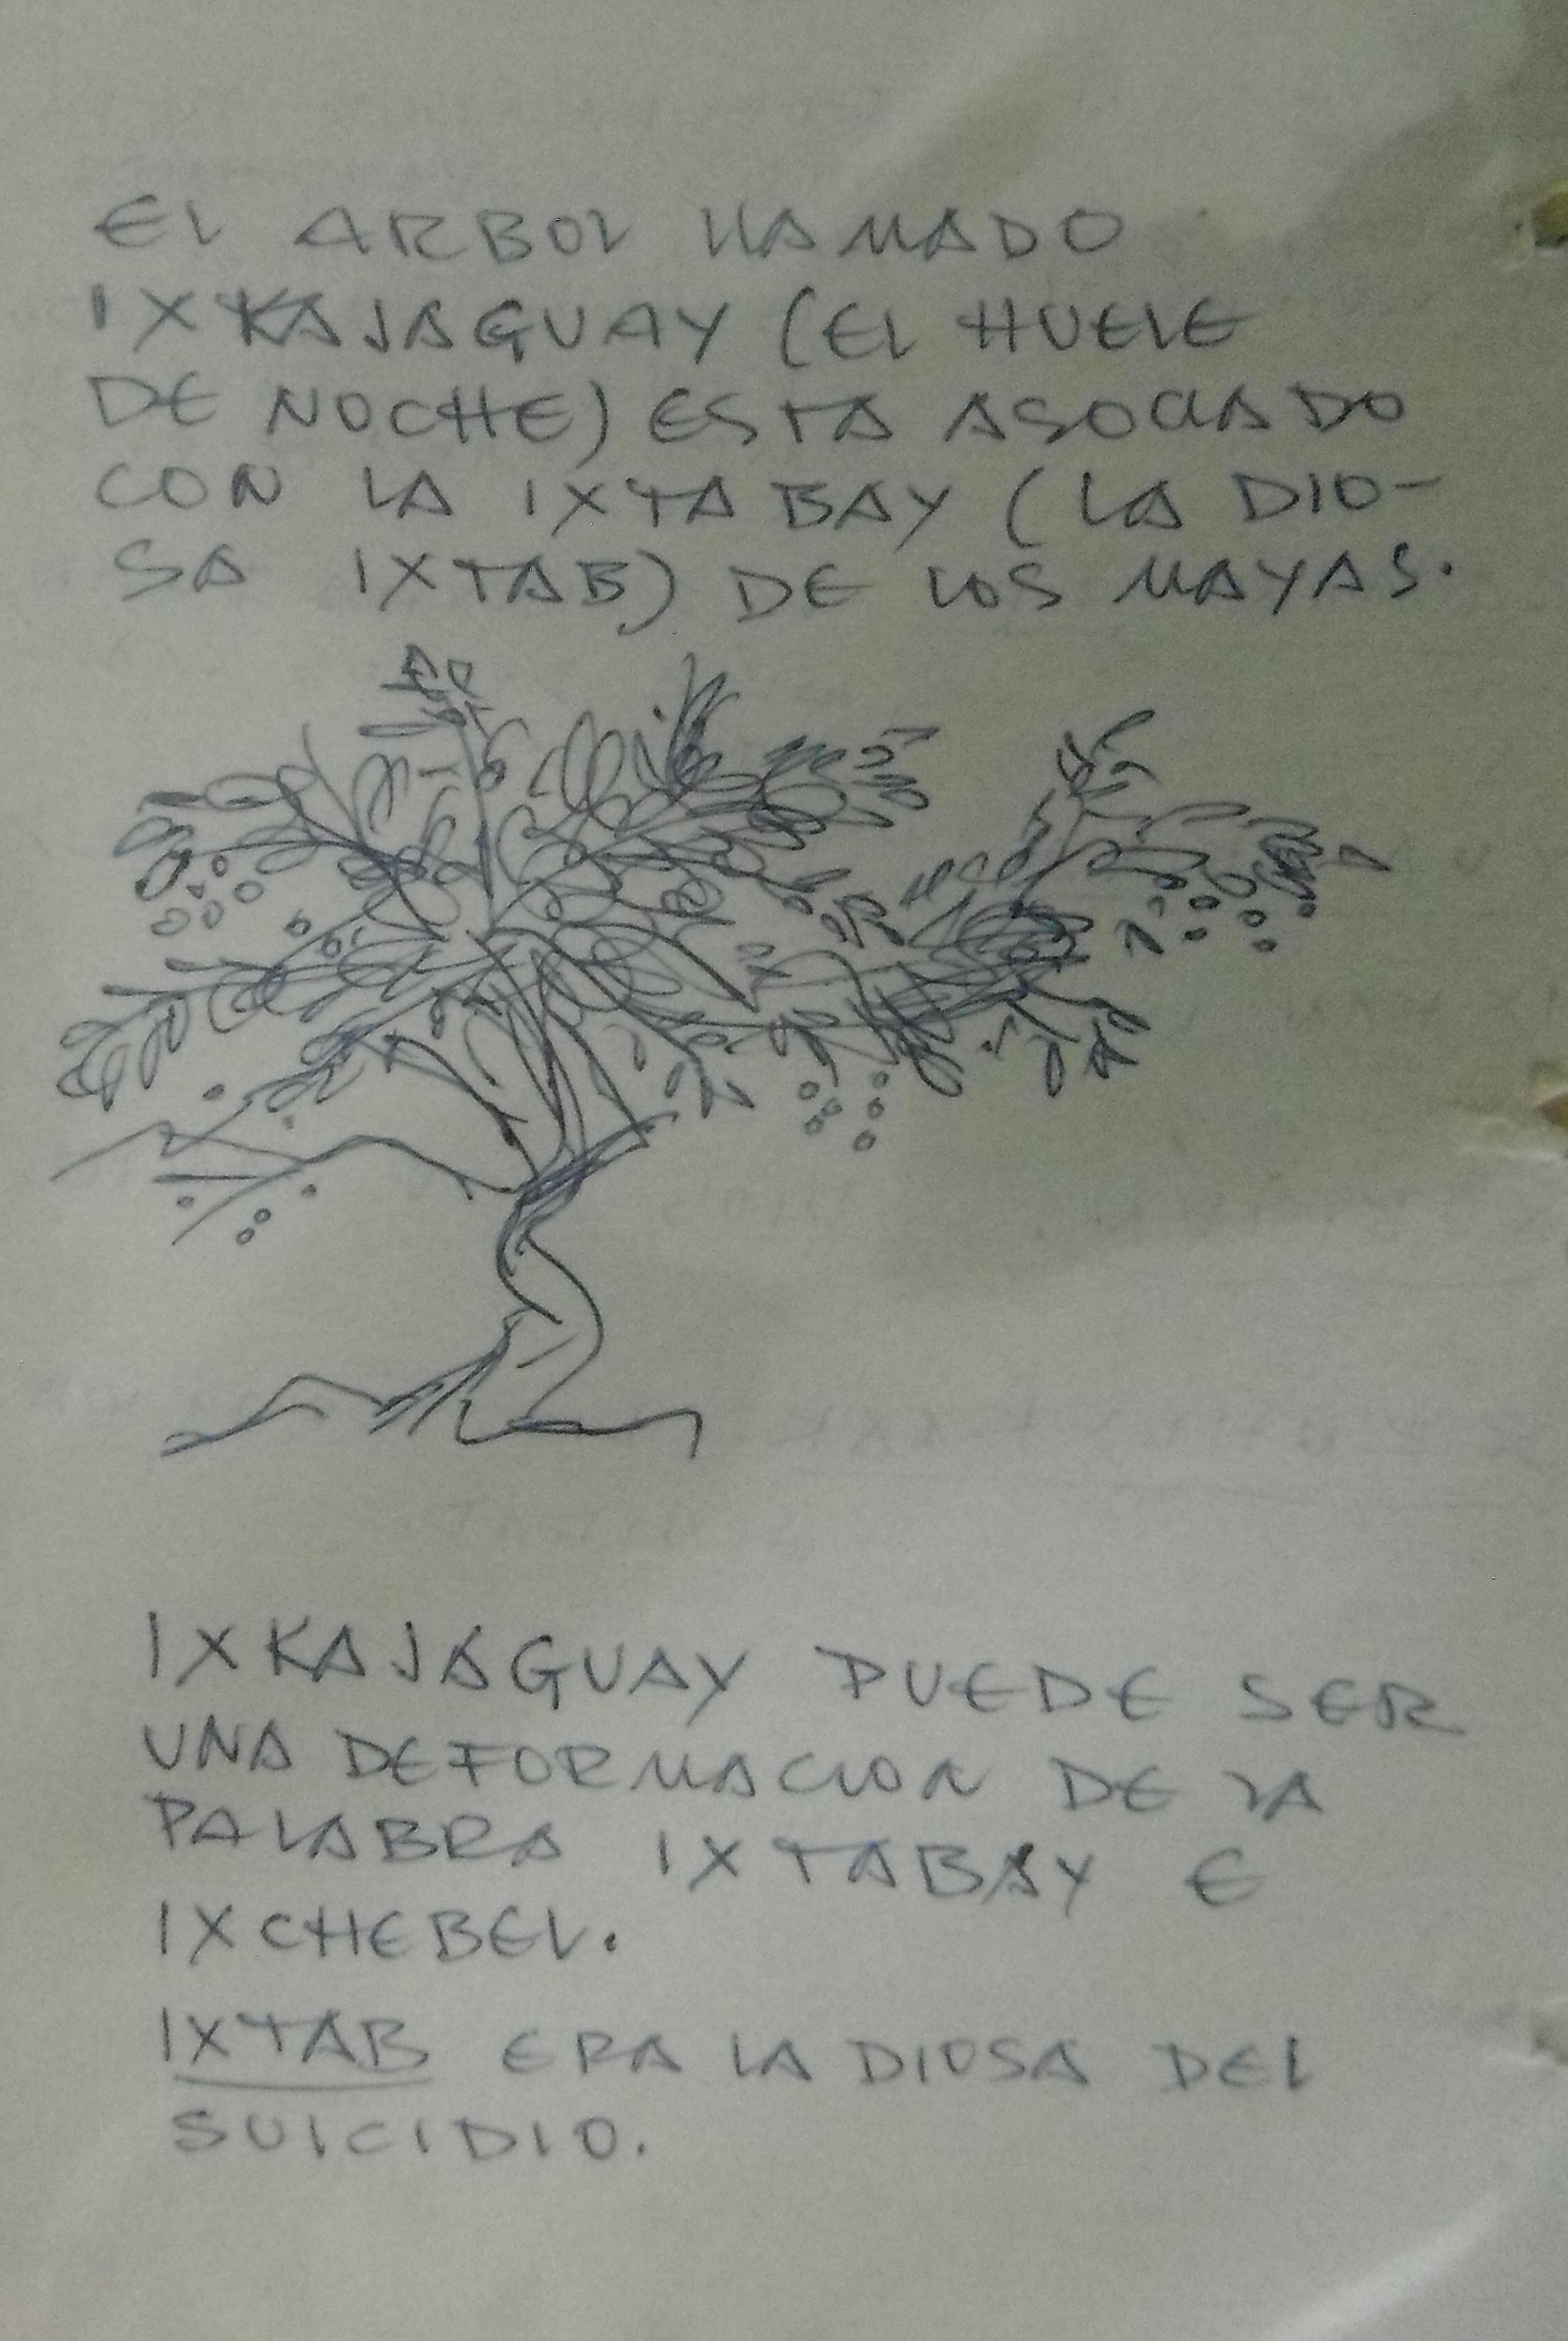 EL ARBOL LLAMADO
IXKAJAGUAY (EL HUELE
DE NOCHE) ESTA ASOCIADO
CON LA IXTABAY (LA DIO-
SA IXTAB) DE LOS MAYAS.
IXKAJAGUAY PUEDE SER
UNA DEFORMACION DE LA
PALABRA IXTABAY E
IXCHEBEL.
IXTAB ERA LA DIOSA DEL
SUICIDIO.